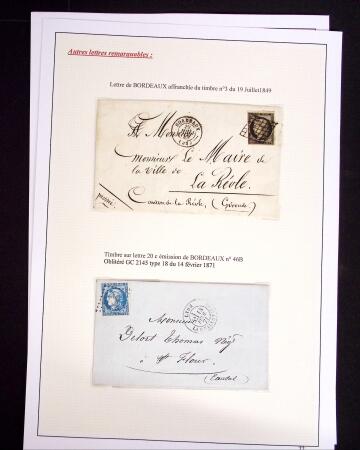 Autres lettres remarquables :
Lettre de BORDEAUX affranchie du timbre n°3 du 19 Juillet1849
A Monsieur
monsieur Le Maire de
la Ville de
La Réole.
La Réole, (Gironde)
BORDEAUX
Timbre sur lettre 20 c émission de BORDEAUX n° 46B
Oblitéré GC 2145 type 18 du 14 février 1871
Monsieur
Delort Thomas
à St Flour
(Cantal)